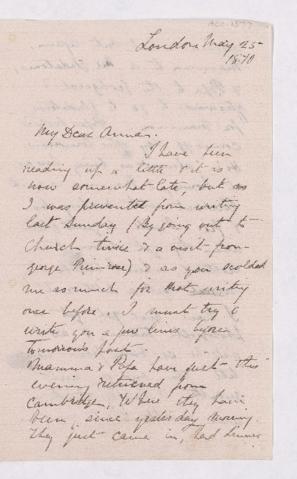 London May 25
1870
My Dear Anna.
I have been
reading up a little & it is
now somewhat late, but as
I was prevented from writing
last Sunday (By going out to
Church twice & a visit from
George Primrose) & as you scolded
me so much for not writing
once before, I must try &
write you a few lines before
tomorrows post
Mamma & Papa have just this
evening returned from
Cambridge, Where they have
been since yesterday morning.
They just came in, had dinner